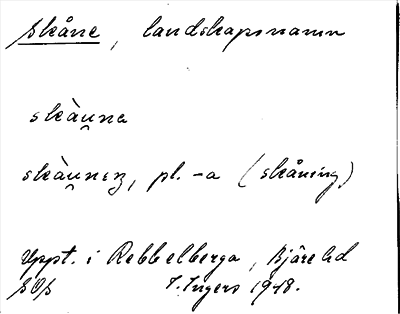 Skåne, landskapsnamn
skàu̯na
skàu̯nıŋ, pl. -a (skåning)
Uppt. i Rebbelberga, Bjäre hd
I. Ingers 1948.